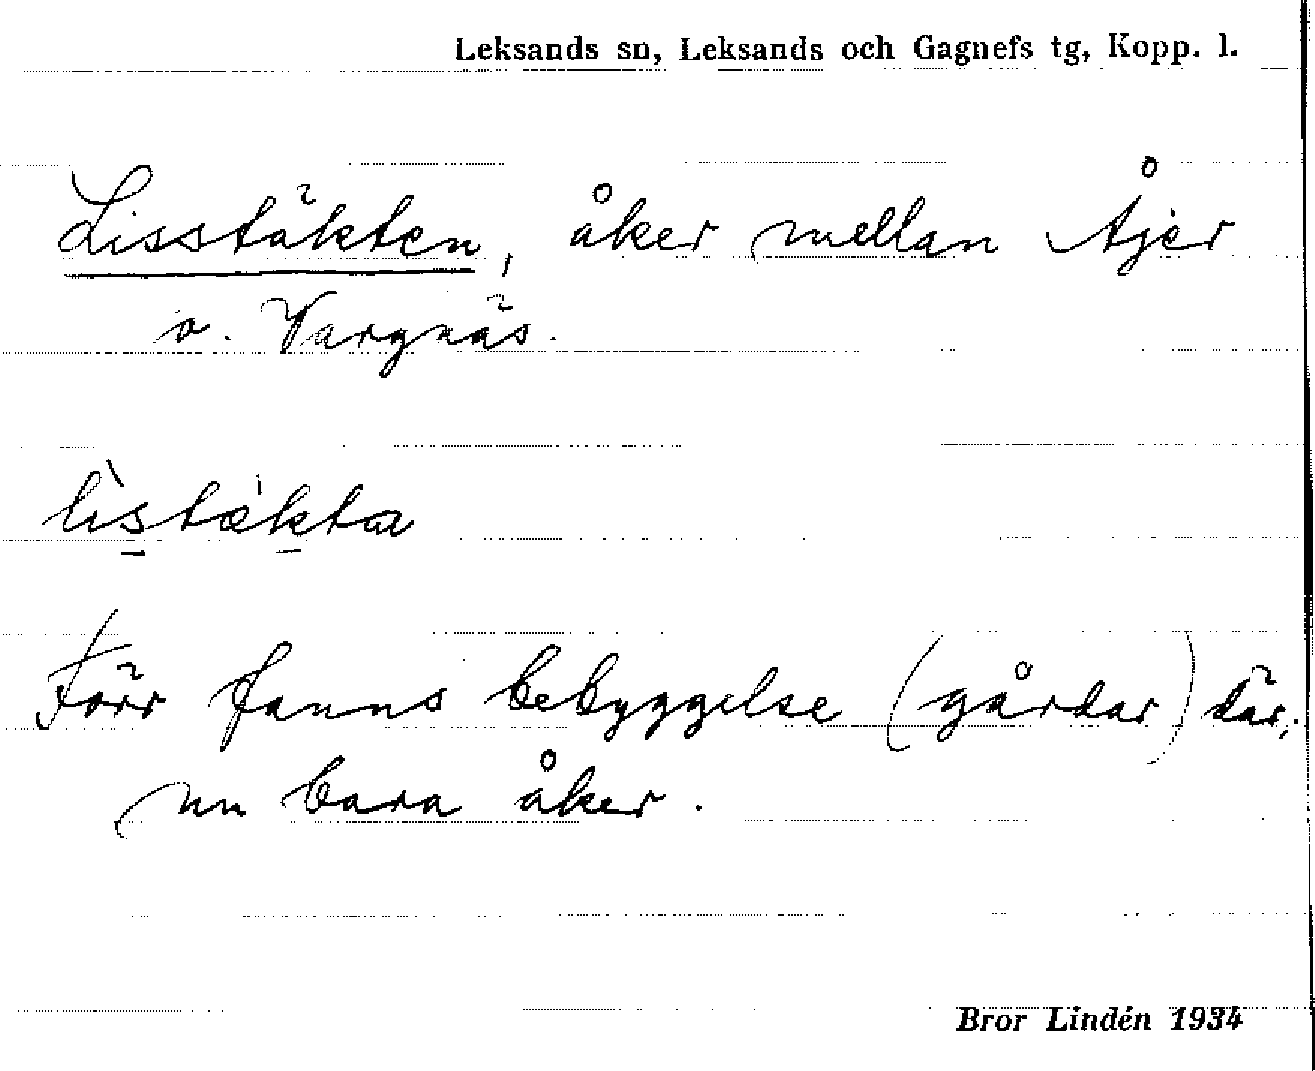 Leksands sn, Leksands och Gagnefs tg, Kopp. l.
Lisstäkten, åker mellan Åjer
o. Vargnäs.
lìstæ̀kta
Förr fanns bebyggelse (gårdar) där,
nu bara åker.
Bror Lindén 1934